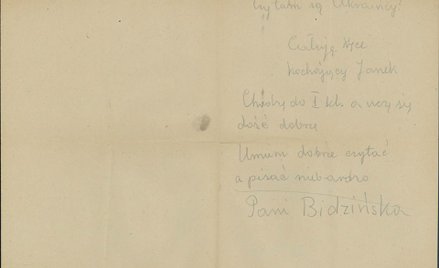 Czy tam są Ukraincy?
Całuję
kochający Janek
Chodzę do I kl. a uczę się
dość dobrze
Umiem dobrze czytać
a pisać niebardzo
Pani Bidzińska